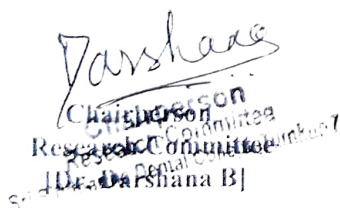 Darshana
Chairperson
Research Committee
[Dr. Darshana B]
Chairperson
Research Committee
Dental